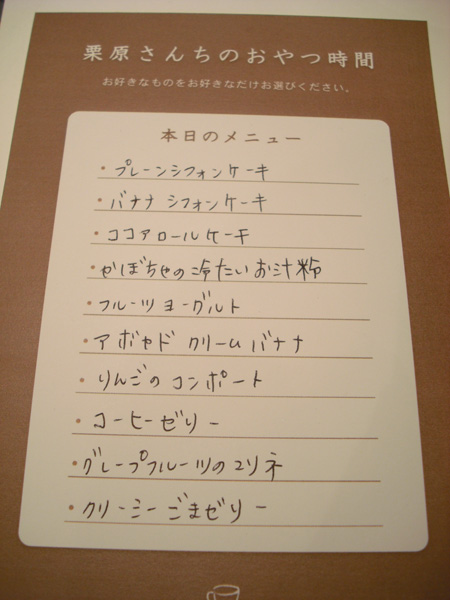 栗原さんちのおやつ時間
お好きなものをお好きなだけお選びください。
本日のメニュー
・プレーンシフォンケーキ
・バナナシフォンケーキ
・ココアロールケーキ
・かぼちゃの冷たいお汁粉
・フルーツヨーグルト
・アボカド クリームバナナ
・りんごのコンポート
・コーヒーゼリー
・グレープフルーツのマリネ
・クリーミーごまゼリー